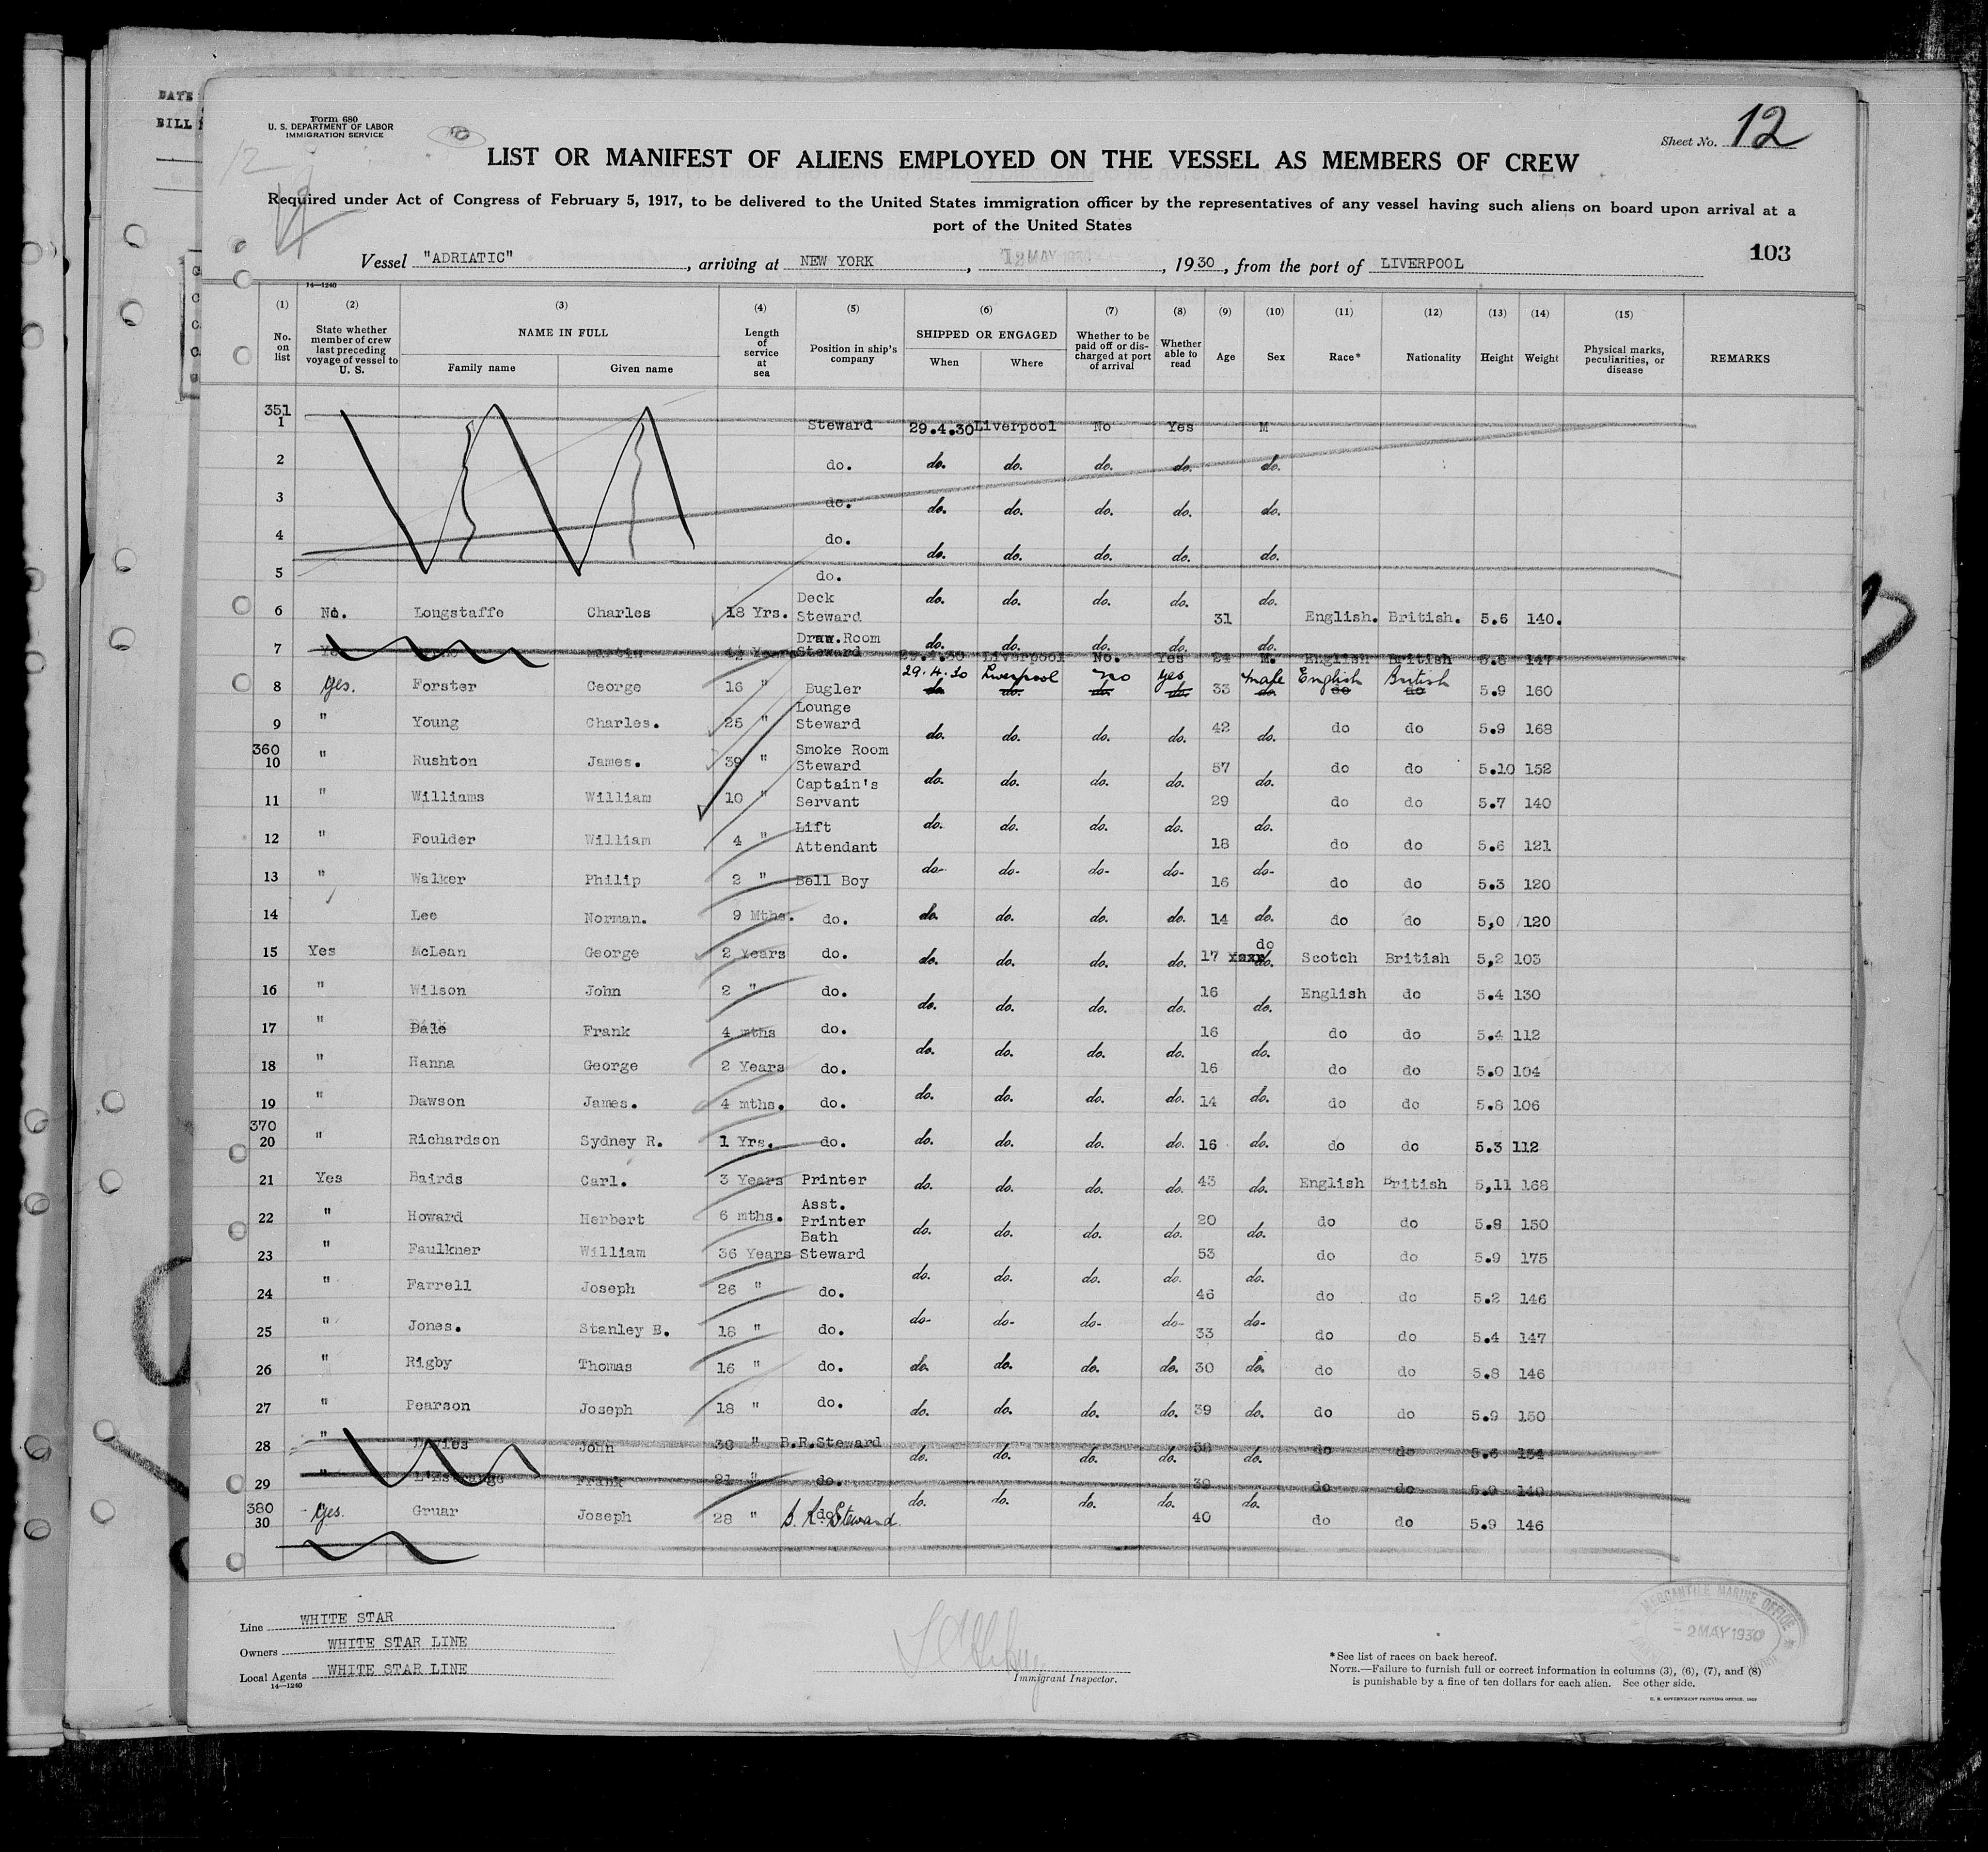 DATE
BILL
Form 680
U. S. DEPARTMENT OF LABOR
IMMIGRATION SERVICE
Sheet No. 12
LIST OR MANIFEST OF ALIENS EMPLOYED ON THE VESSEL AS MEMBERS OF CREW
Required under Act of Congress of February 5, 1917, to be delivered to the United States immigration officer by the representatives of any vessel having such aliens on board upon arrival at a
port of the United States
103
Vessel "ADRIATIC", arriving at NEW YORK, 12 MAY 1930, 1930, from the port of LIVERPOOL
14—1240
(1) (2) (3) (4) (5) (6) (7) (8) (9) (10) (11) (12) (13) (14) (15)
No. on list State whether member of crew last preceding voyage of vessel to U. S. NAME IN FULL Family name Given name Length of service at sea Position in ship's company SHIPPED OR ENGAGED When Where Whether to be paid off or discharged at port of arrival Whether able to read Age Sex Race* Nationality Height Weight Physical marks, peculiarities, or disease REMARKS
351
1 Steward 29.4.30 Liverpool No Yes M
2 do. do. do. do. do. do.
3 do. do. do. do. do. do.
4 do. do. do. do. do. do.
5 do. do. do. do. do. do.
6 No. Longstaffe Charles 18 Yrs. Deck Steward 31 English. British. 5.6 140.
7 Martin 4½ Years Draw.Room Steward do. do. do. do. do. 29.4.30 Liverpool No. Yes 24 M. English British 5.8 147
8 Yes. Forster George 16 " Bugler 29.4.30 Liverpool no yes 33 male English British 5.9 160
9 " Young Charles. 25 " Lounge Steward do. do. do. do. 42 do. do do 5.9 168
360
10 " Rushton James. 39 " Smoke Room Steward do. do. do. do. 57 do. do do 5.10 152
11 " Williams William 10 " Captain's Servant do. do. do. do. 29 do. do do 5.7 140
12 " Foulder William 4 " Lift Attendant do. do. do. do. 18 do. do do 5.6 121
13 " Walker Philip 2 " Bell Boy do- do- do- do- 16 do- do do 5.3 120
14 Lee Norman. 9 Mths. do. do. do. do. do. 14 do. do do 5,0 120
15 Yes McLean George 2 Years do. do. do. do. do. 17 do do. Scotch British 5,2 103
16 " Wilson John 2 " do. do. do. do. do. 16 do. English do 5.4 130
17 " Dale Frank 4 mths do. do. do. do. do. 16 do. do do 5.4 112
18 " Hanna George 2 Years do. do. do. do. do. 16 do. do do 5.0 104
19 " Dawson James. 4 mths. do. do. do. do. do. 14 do. do do 5.8 106
370
20 " Richardson Sydney R. 1 Yrs. do. do. do. do. do. 16 do. do do 5.3 112
21 Yes Bairds Carl. 3 Years Printer do. do. do. do. 43 do. English British 5,11 168
22 " Howard Herbert 6 mths. Asst. Printer do. do. do. do. 20 do. do do 5.8 150
23 " Faulkner William 36 Years Bath Steward do. do. do. do. 53 do. do do 5.9 175
24 " Farrell Joseph 26 " do. do- do- do- do- 46 do- do do 5.2 146
25 " Jones. Stanley B. 18 " do. do. do. do. do. 33 do. do do 5.4 147
26 " Rigby Thomas 16 " do. do. do. do. do. 30 do. do do 5.8 146
27 " Pearson Joseph 18 " do. do. do. do. do. 39 do. do do 5.9 150
28 " Davies John 30 " B.R.Steward do. do. do. do. 58 do. do do 5.6 154
29 " L'Estrange Frank 21 " do. 39 do do 5.9 140
380
30 Yes. Gruar Joseph 28 " B. R. Steward. do. do. do. do. 40 do. do do 5.9 146
Line WHITE STAR
Owners WHITE STAR LINE
Local Agents WHITE STAR LINE
14—1240
Immigrant Inspector.
*See list of races on back hereof.
NOTE.—Failure to furnish full or correct information in columns (3), (6), (7), and (8)
is punishable by a fine of ten dollars for each alien. See other side.
U. S. GOVERNMENT PRINTING OFFICE. 1929
MERCANTILE MARINE OFFICE
-2 MAY 1930